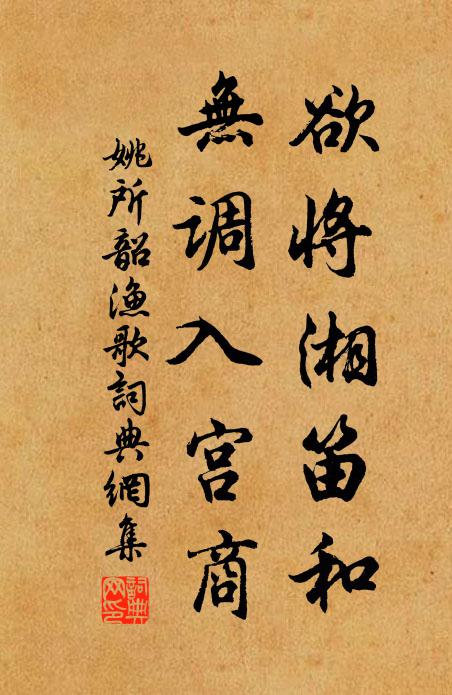 欲将湘笛和
無调入宫商
姚所韶漁歌詞典網集
詞典
网印